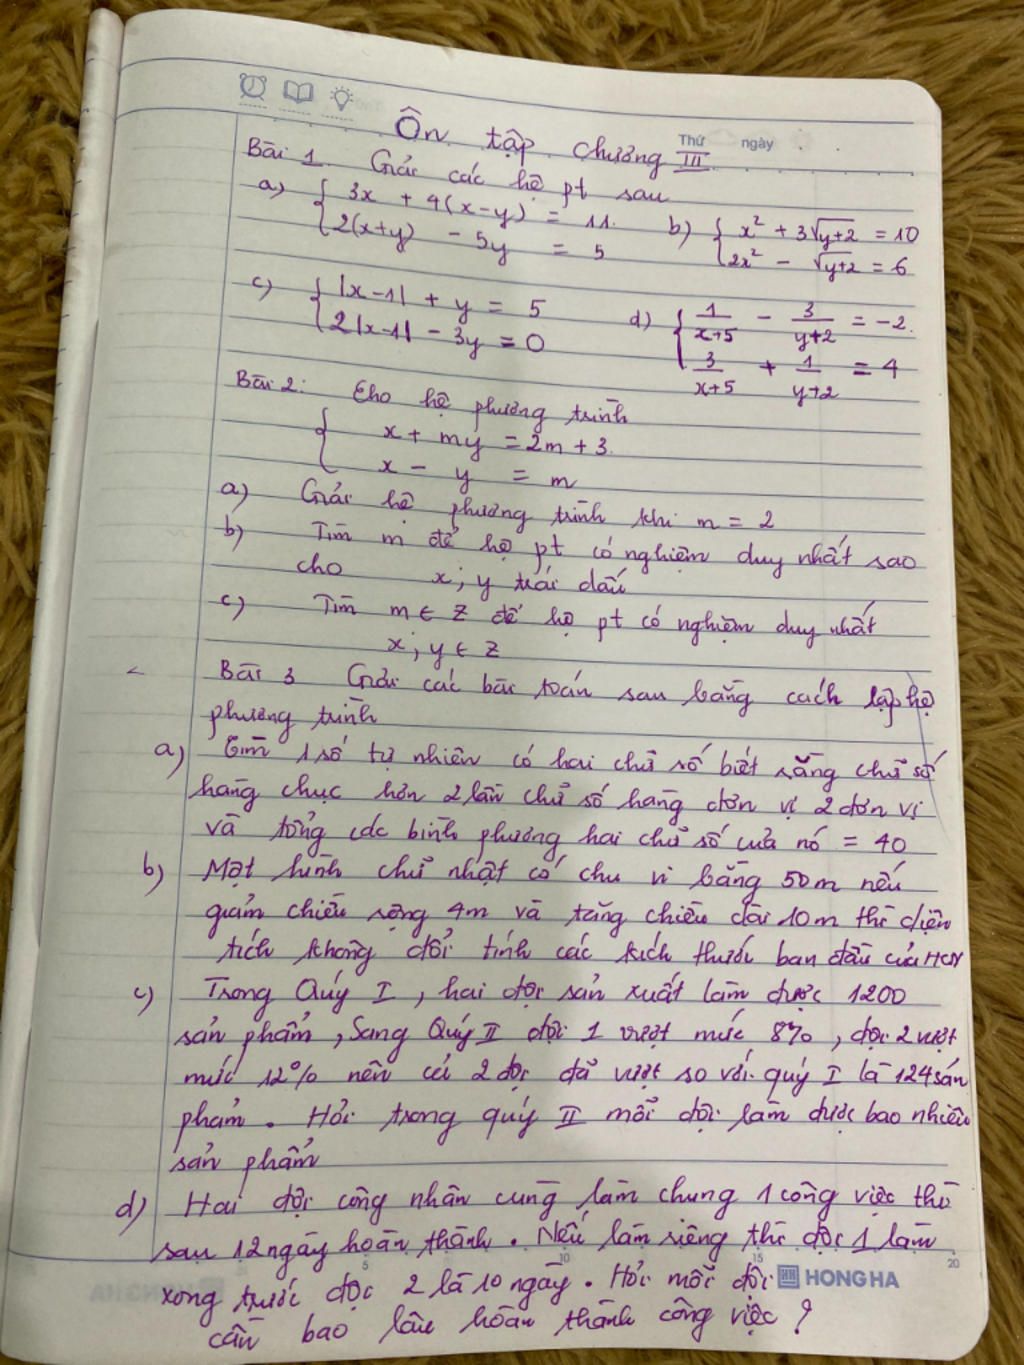 Thứ ngày
Ôn tập chương III
Bài 1. Giải các hệ pt sau
a) { 3x + 4(x-y) = 11.
2(x+y) - 5y = 5
b) { x² + 3√y+2 = 10
2x² - √y+2 = 6
c) { |x-1| + y = 5
2|x-1| - 3y = 0
d) { 1/x+5 - 3/y+2 = -2.
3/x+5 + 1/y+2 = 4
Bài 2: Cho hệ phương trình
{ x + my = 2m + 3.
x - y = m
a) Giải hệ phương trình khi m = 2
b) Tìm m để hệ pt có nghiệm duy nhất sao
cho x; y trái dấu
c) Tìm m ∈ Z để hệ pt có nghiệm duy nhất
x; y ∈ Z
Bài 3 Giải các bài toán sau bằng cách lập hệ
phương trình
a) Tìm 1 số tự nhiên có hai chữ số biết rằng chữ số
hàng chục hơn 2 lần chữ số hàng đơn vị 2 đơn vị
và tổng các bình phương hai chữ số của nó = 40
b) Một hình chữ nhật có chu vi bằng 50m nếu
giảm chiều rộng 4m và tăng chiều dài 10m thì diện
tích không đổi tính các kích thước ban đầu của HCN
c) Trong Quý I, hai đội sản xuất làm được 1200
sản phẩm, Sang Quý II đội 1 vượt mức 8%, đội 2 vượt
mức 12% nên cả 2 đội đã vượt so với quý I là 124 sản
phẩm. Hỏi trong quý II mỗi đội làm được bao nhiêu
sản phẩm
d) Hai đội công nhân cùng làm chung 1 công việc thì
sau 12 ngày hoàn thành. Nếu làm riêng thì đội 1 làm
xong trước đội 2 là 10 ngày. Hỏi mỗi đội
cần bao lâu hoàn thành công việc?
5 10 15 20
HONG HA